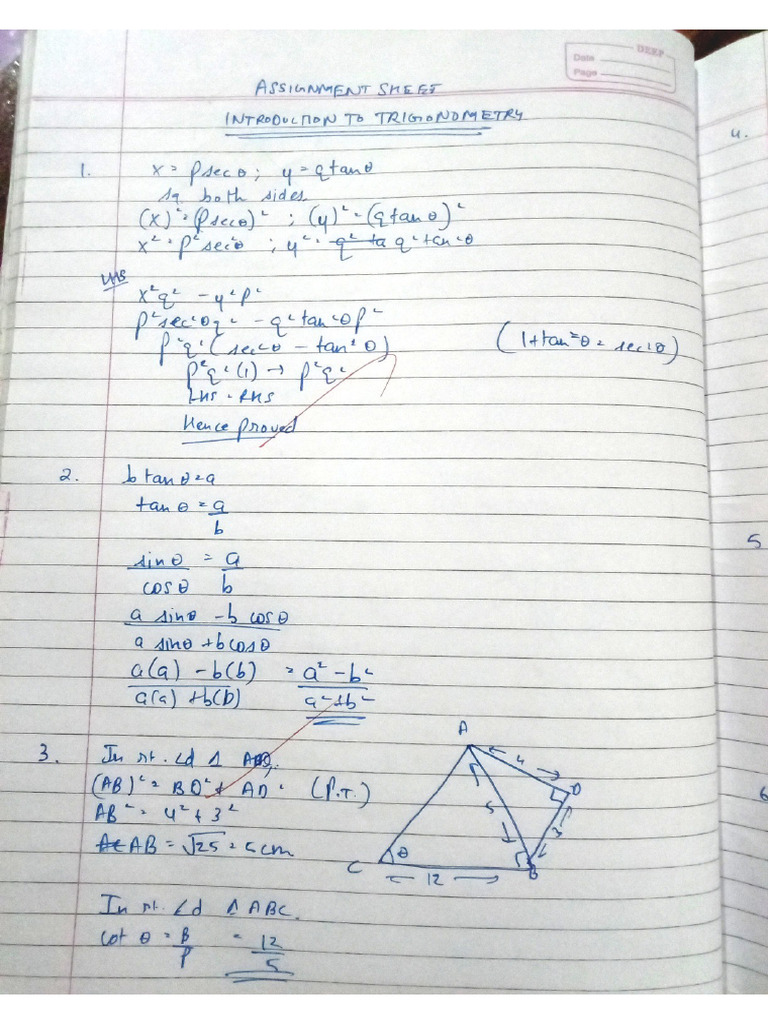 DEEP
Date
Page
ASSIGNMENT SHEET
INTRODUCTION TO TRIGIONOMETRY
1. x = p secθ ; y = q tanθ
sq both sides
(x)² = (p secθ)² ; (y)² = (q tanθ)²
x² = p² sec²θ ; y² = q² ta q² tan²θ
LHS
x²q² - y²p²
p² sec²θ q² - q² tan²θ p²
p²q² (sec²θ - tan²θ) (1 + tan²θ = sec²θ)
p²q² (1) → p²q²
LHS = RHS
Hence proved
2. b tanθ = a
tanθ = a/b
sinθ/cosθ = a/b
a sinθ - b cosθ
a sinθ + b cosθ
a(a) - b(b) = a² - b²
a(a) + b(b) a² + b²
3. In rt. ∠d Δ ABD,
(AB)² = BD² + AD² (P.T.)
AB² = 4² + 3²
AC AB = √25 = 5cm
In rt. ∠d Δ ABC.
cot θ = B/P = 12/5
A
4
D
5
3
C
θ
B
12
4.
5
6